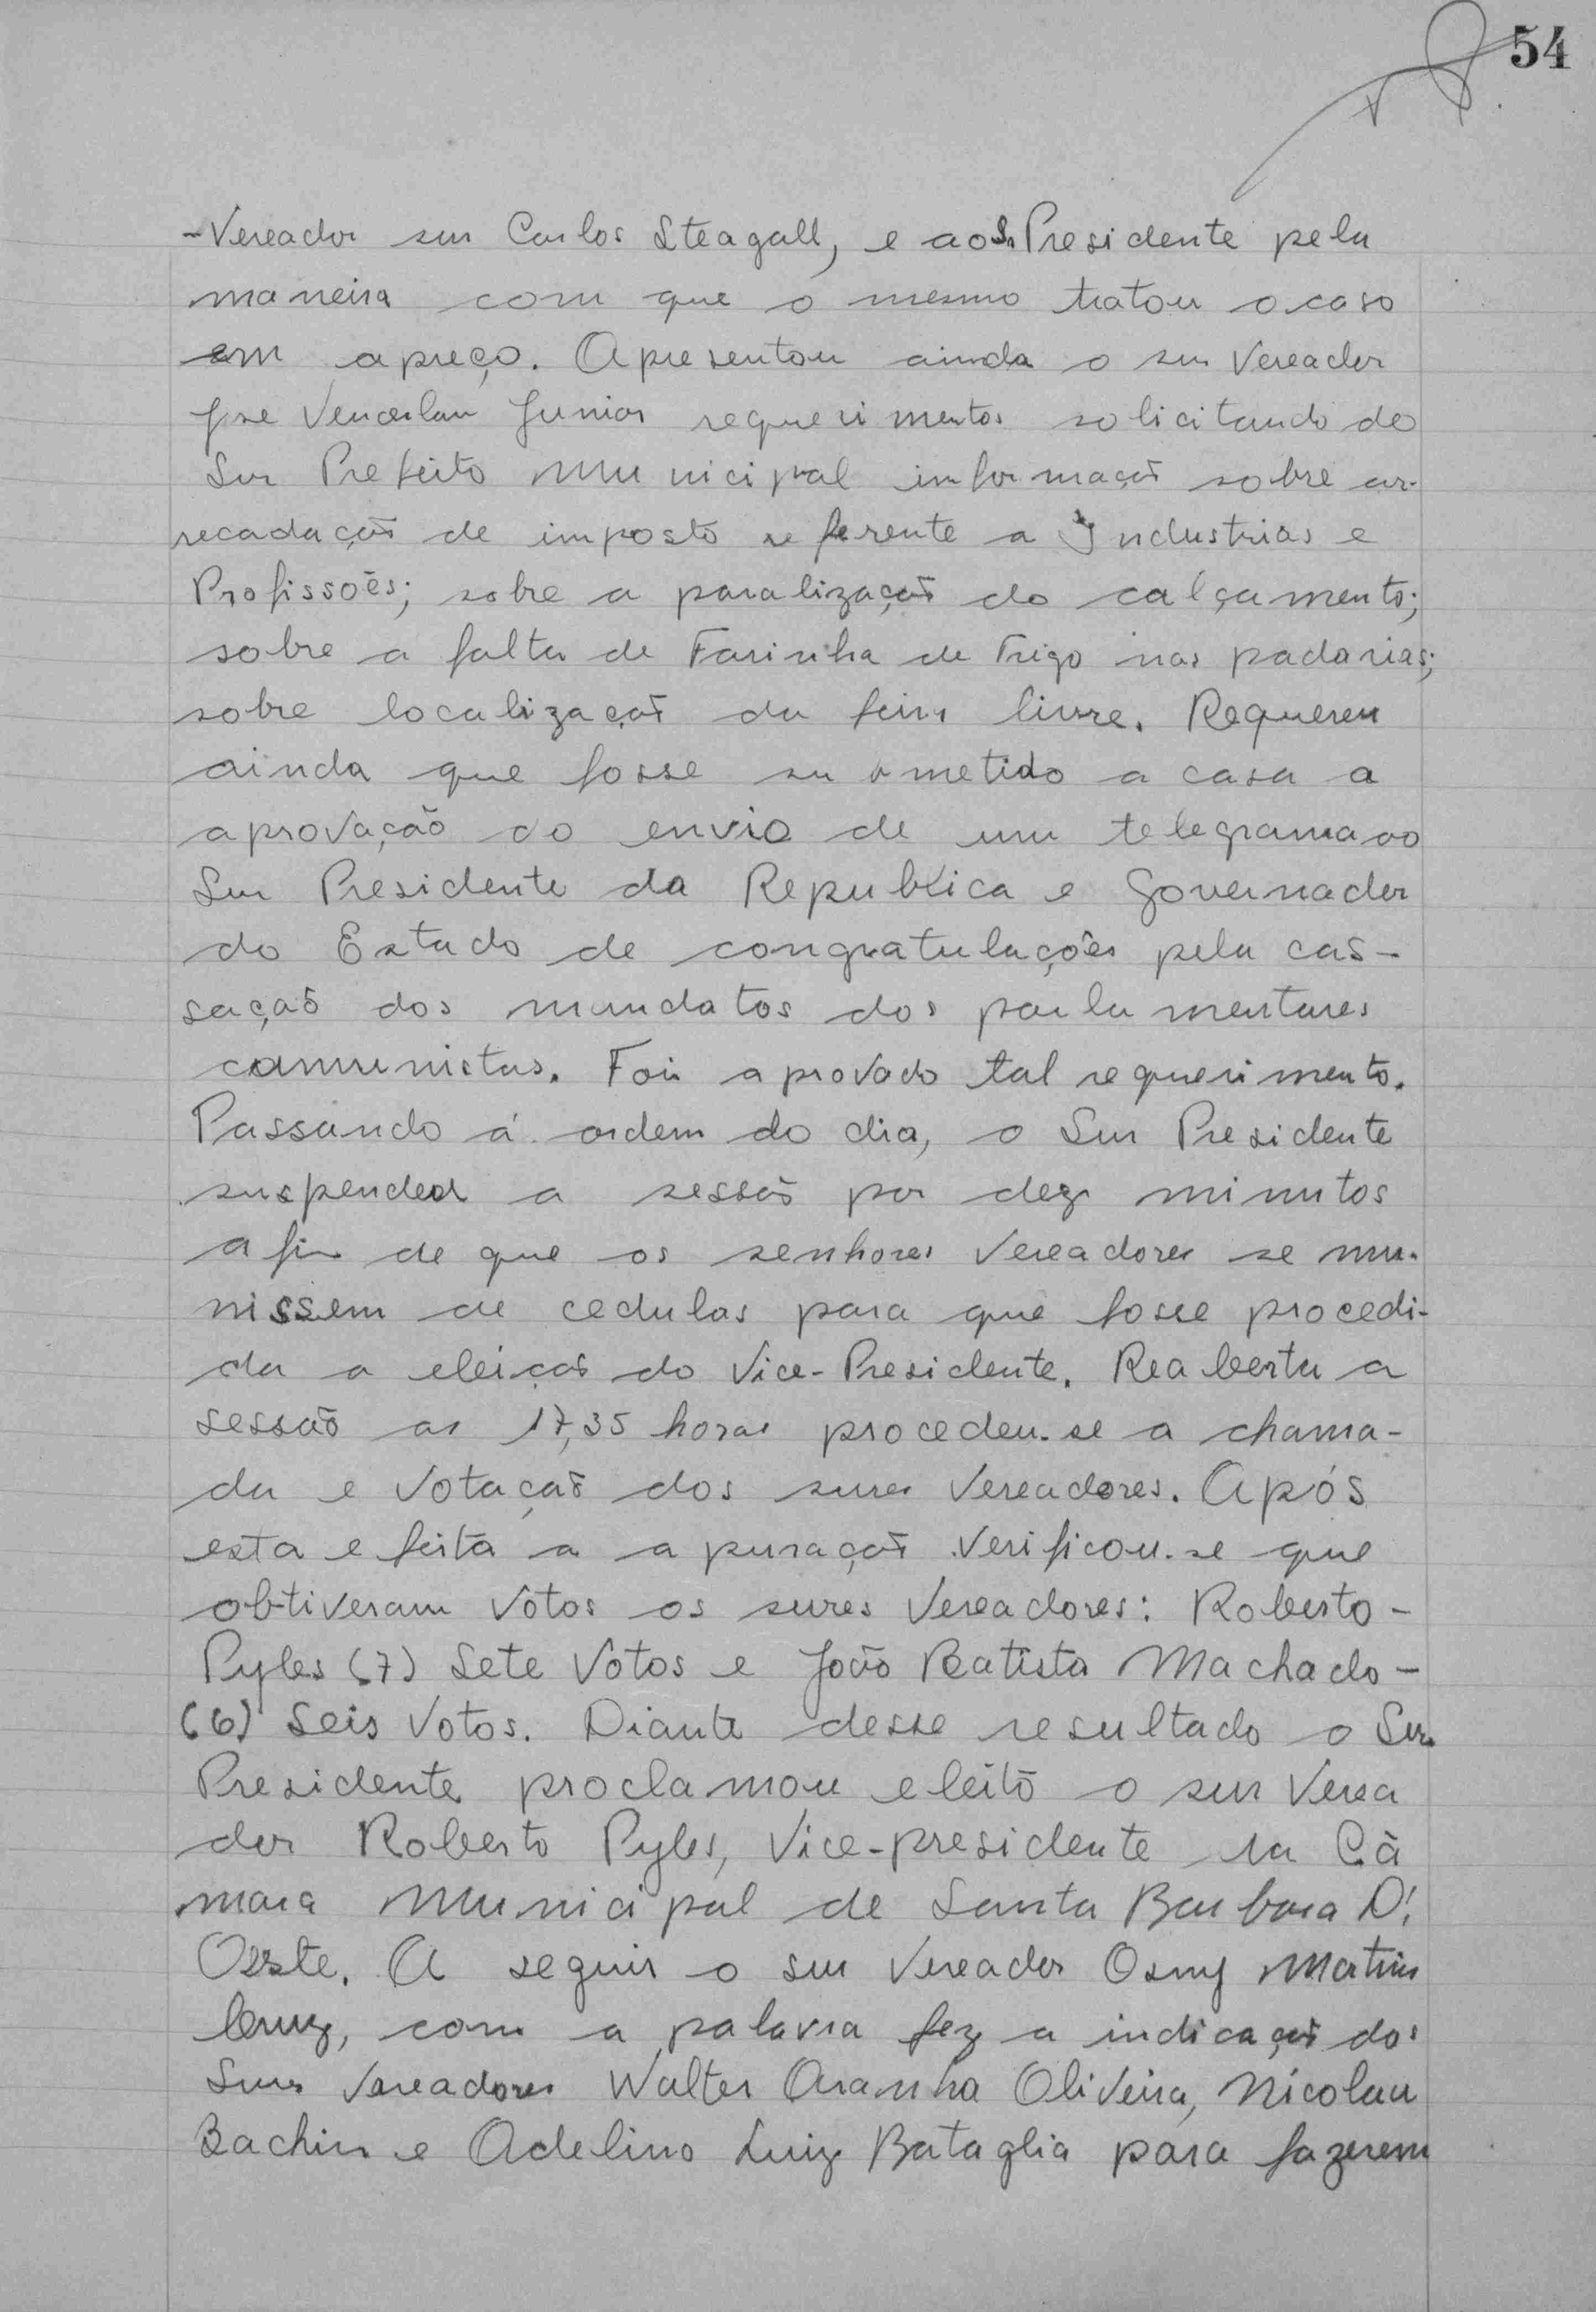 54
-Vereador snr Carlos Steagall, e ao Sr. Presidente pela
maneira com que o mesmo tratou o caso
em apreço. Apresentou ainda o snr Vereador
José Venceslau Junior requerimentos solicitando do
Snr Prefeito Municipal informação sobre ar-
recadação de imposto referente a Industrias e
Profissões; sobre a paralização do calçamento;
sobre a falta de Farinha de Trigo nas padarias;
sobre localização da feira livre. Requereu
ainda que fosse submetido a casa a
aprovação do envio de um telegrama ao
Snr Presidente da Republica e Governador
do Estado de congratulações pela cas-
sação dos mandatos dos parlamentares
comunistas. Foi aprovado tal requerimento.
Passando á ordem do dia, o Snr Presidente
suspendeu a sessão por dez minutos
afim de que os senhores Vereadores se mu-
nissem de cedulas para que fosse procedi-
da a eleição do Vice-Presidente. Reaberta a
sessão as 17,35 horas procedeu-se a chama-
da e votação dos snres Vereadores. Após
esta e feita a apuração verificou-se que
obtiveram votos os snres Vereadores: Roberto -
Pyles (7) Sete Votos e João Batista Machado -
(6) Seis Votos. Diante desse resultado o Snr.
Presidente proclamou eleito o snr Verea
dor Roberto Pyles, Vice-presidente da Câ
mara Municipal de Santa Barbara D'
Oeste. A seguir o snr Vereador Osny Martins
Cruz, com a palavra fez a indicação dos
Snres Vereadores Walter Aranha Oliveira, Nicolau
Bachin e Adelino Luiz Bataglia para fazerem